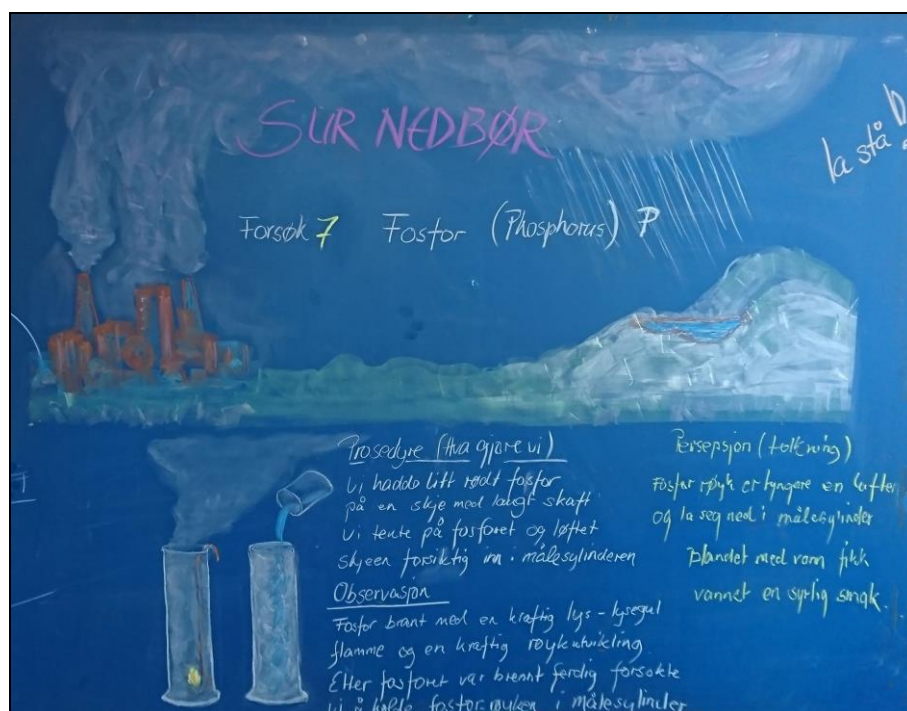 SUR NEDBØR
la stå
Forsøk 7 Fosfor (Phosphorus) P
Prosedyre (Hva gjøre vi)
Vi hadde litt rødt fosfor
på en skje med langt skaft
Vi tente på fosforet og løftet
skjeen forsiktig inn i målesylinderen
Observasjon
Fosfor brant med en kraftig lys - lysegul
flamme og en kraftig røykutvikling
Etter fosforet var brennt ferdig forsøkte
vi å helde fosfor røyken i målesylinder
Persepsjon (tolkning)
Fosfor røyk er tyngere en luften
og la seg ned i målesylinder
Blandet med vann fikk
vannet en syrlig smak.